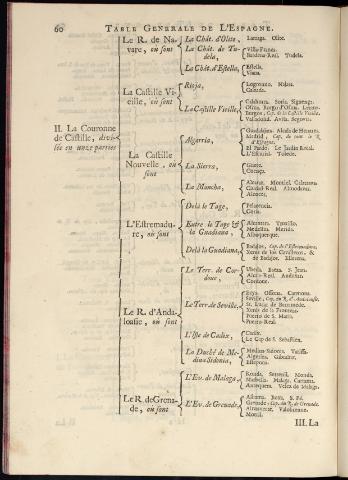 60 TABLE GENERALE DE L'ESPAGNE.
Le R. de Na-
vare, où sont
La Chât. d'Olite, Larraga. Olite.
La Chât. de Tu-
dela,
Villa-Franca.
Tudela.
La Chât. d'Estella,
Estella,
Viana.
II. La Couronne
de Castille, divi-
sée en onze parties
La Castille Vi-
eille, où sont
Rioja,
Logronno.
Calzada.
La Castille Vieille,
Calahorra. Soria. Siguença.
Osma.
Burgos, Cap. de la Castille Vieille.
Valladolid. Avila. Segovia.
La Castille
Nouvelle, où
sont
Algarria,
Guadalajara. Alcala de Henares.
Madrid, Cap. de tout le R.
d'Espagne.
El Pardo. Le Jardin Royal.
L'Escurial. Tolede.
La Sierra,
Cuença.
La Mancha,
Alcaraz. Montiel. Calatrava.
Ciudad-Real. Almodovar.
L'Estremadu-
re, où sont
Delà le Tage,
Placencia.
Coria.
Entre le Tage &
la Guadiana,
Alcantara. Truxillo.
Medellin. Merida.
Albuquerque.
Delà la Guadiana,
Badajos, Cap. de l'Estremadure.
Xeres de los Cavalleros, &
de Badajos. Ellerena.
Le R. d'Anda-
lousie, où sont
Le Terr. de Cor-
doue,
Ubeda. Baeza. S. Jean.
Andujar.
Cordoue.
Le Terr. de Seville,
Ossuna. Carmona.
Seville, Cap. du R. d'Andalousie.
St. Lucar de Barameda.
Xeres de la Frontera.
Puerto de S. Maria.
Puerto-Real.
L'Isle de Cadix,
Cadix.
Le Cap de S. Sebastien.
La Duché de Me-
dina Sidonia,
Medina-Sidonia. Tariffa.
Algezira. Gibraltar.
Estepona.
Le R. de Grena-
de, où sont
L'Ev. de Malaga,
Ronda. Settenil. Monda.
Marbella. Malaga. Cartama.
Antequera. Velez de Malaga.
L'Ev. de Grenade,
Alhama. S. Fé.
Grenade, Cap. du R. de Grenade.
Motril.
III. La